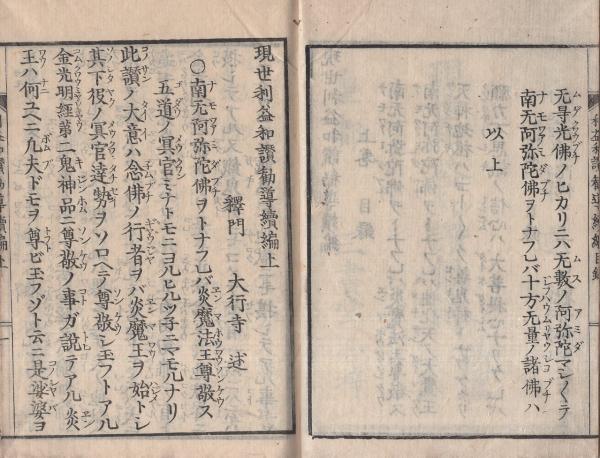 无导光佛ノヒカリニハ无数ノ阿弥陀マシ〱テ
南无阿弥陀佛ヲトナフレバ十方无量ノ諸佛ハ
以上
現世利益和讃勧導續編上
釋門 大行寺 述
○南无阿弥陀佛ヲトナフレバ炎魔法王尊敬ス
五道ノ冥官ミナトモニヨルヒルツ子ニマモルナリ
此讃ノ大意ハ念佛ノ行者ヲバ炎魔王ヲ始トシ
其下役ノ冥官達勢ヲソロヘテ尊敬シ玉フトアル
金光明經第二鬼神品ニ尊敬ノ事ガ説テアル炎
王ハ何ユヘニ凡夫ドモヲ尊ビ玉フゾト云ニ是娑婆ヨ